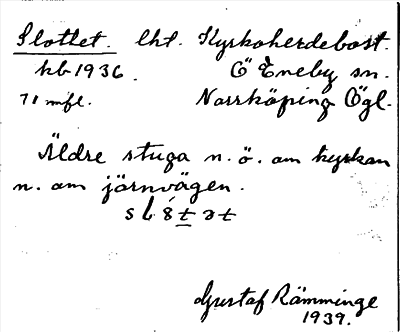 Slottet. lht. Kyrkoherdebost.
kb 1936. Ö Eneby sn.
71 mfl. Norrköping Ögl.
Äldre stuga n. ö. om kyrkan
n. om järnvägen.
Gustaf Rämminge
1939.